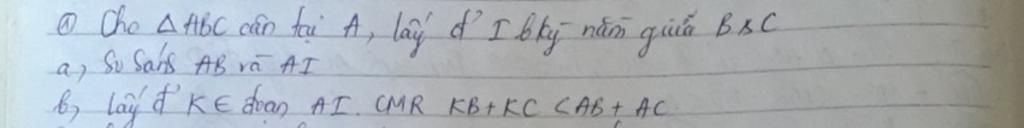 ① Cho △ABC cân tại A, lấy đ' I bkỳ nằm giữa B & C
a, So sánh AB và AI
b, lấy đ' K ∈ đoạn AI. CMR KB + KC < AB + AC